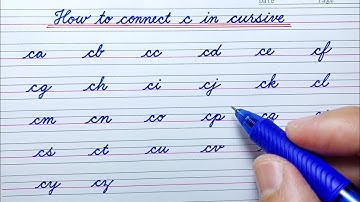 Date Page
How to connect c in cursive
ca cb cc cd ce cf
cg ch ci cj ck cl
cm cn co cp cq
cs ct cu cv
cy cz